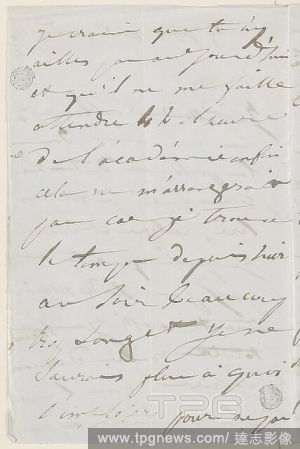 je crains que tu n'y
ailles pas aujourd'hui
et qu'il ne me faille
attendre l'heure
de l'académie enfin
cela ne m'arrangerait
pas car je trouve
le temps depuis hier
au soir beaucoup
trop long et je ne
saurais plus à quoi
l'employer pour
TPG
www.tpgnews.com / 達志影像